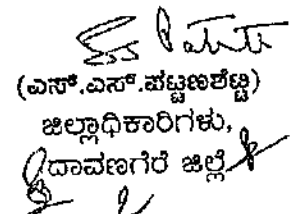 (ಎಸ್.ಎಸ್.ಪಟ್ಟಣಶೆಟ್ಟಿ)
ಜಿಲ್ಲಾಧಿಕಾರಿಗಳು,
ದಾವಣಗೆರೆ ಜಿಲ್ಲೆ